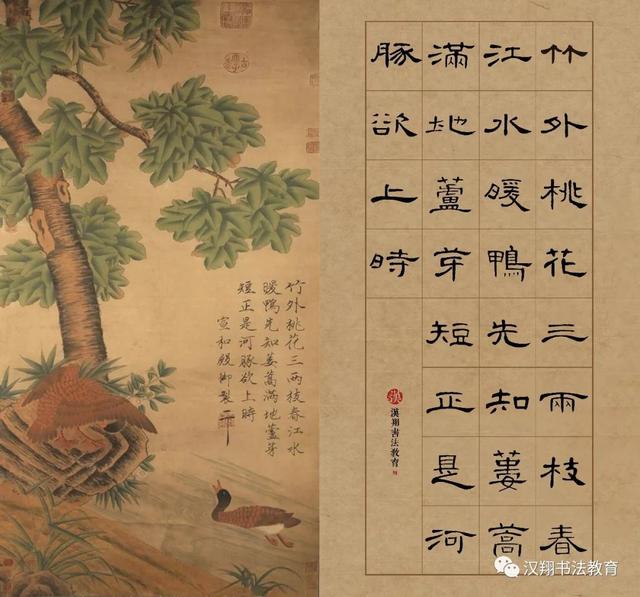 竹外桃花三兩枝春江水
暖鴨先知蔞蒿滿地蘆芽
短正是河豚欲上時
宣和殿御製
竹外桃花三兩枝春
江水暖鴨先知蔞蒿
滿地蘆芽短正是河
豚欲上時
漢翔書法教育
汉翔书法教育